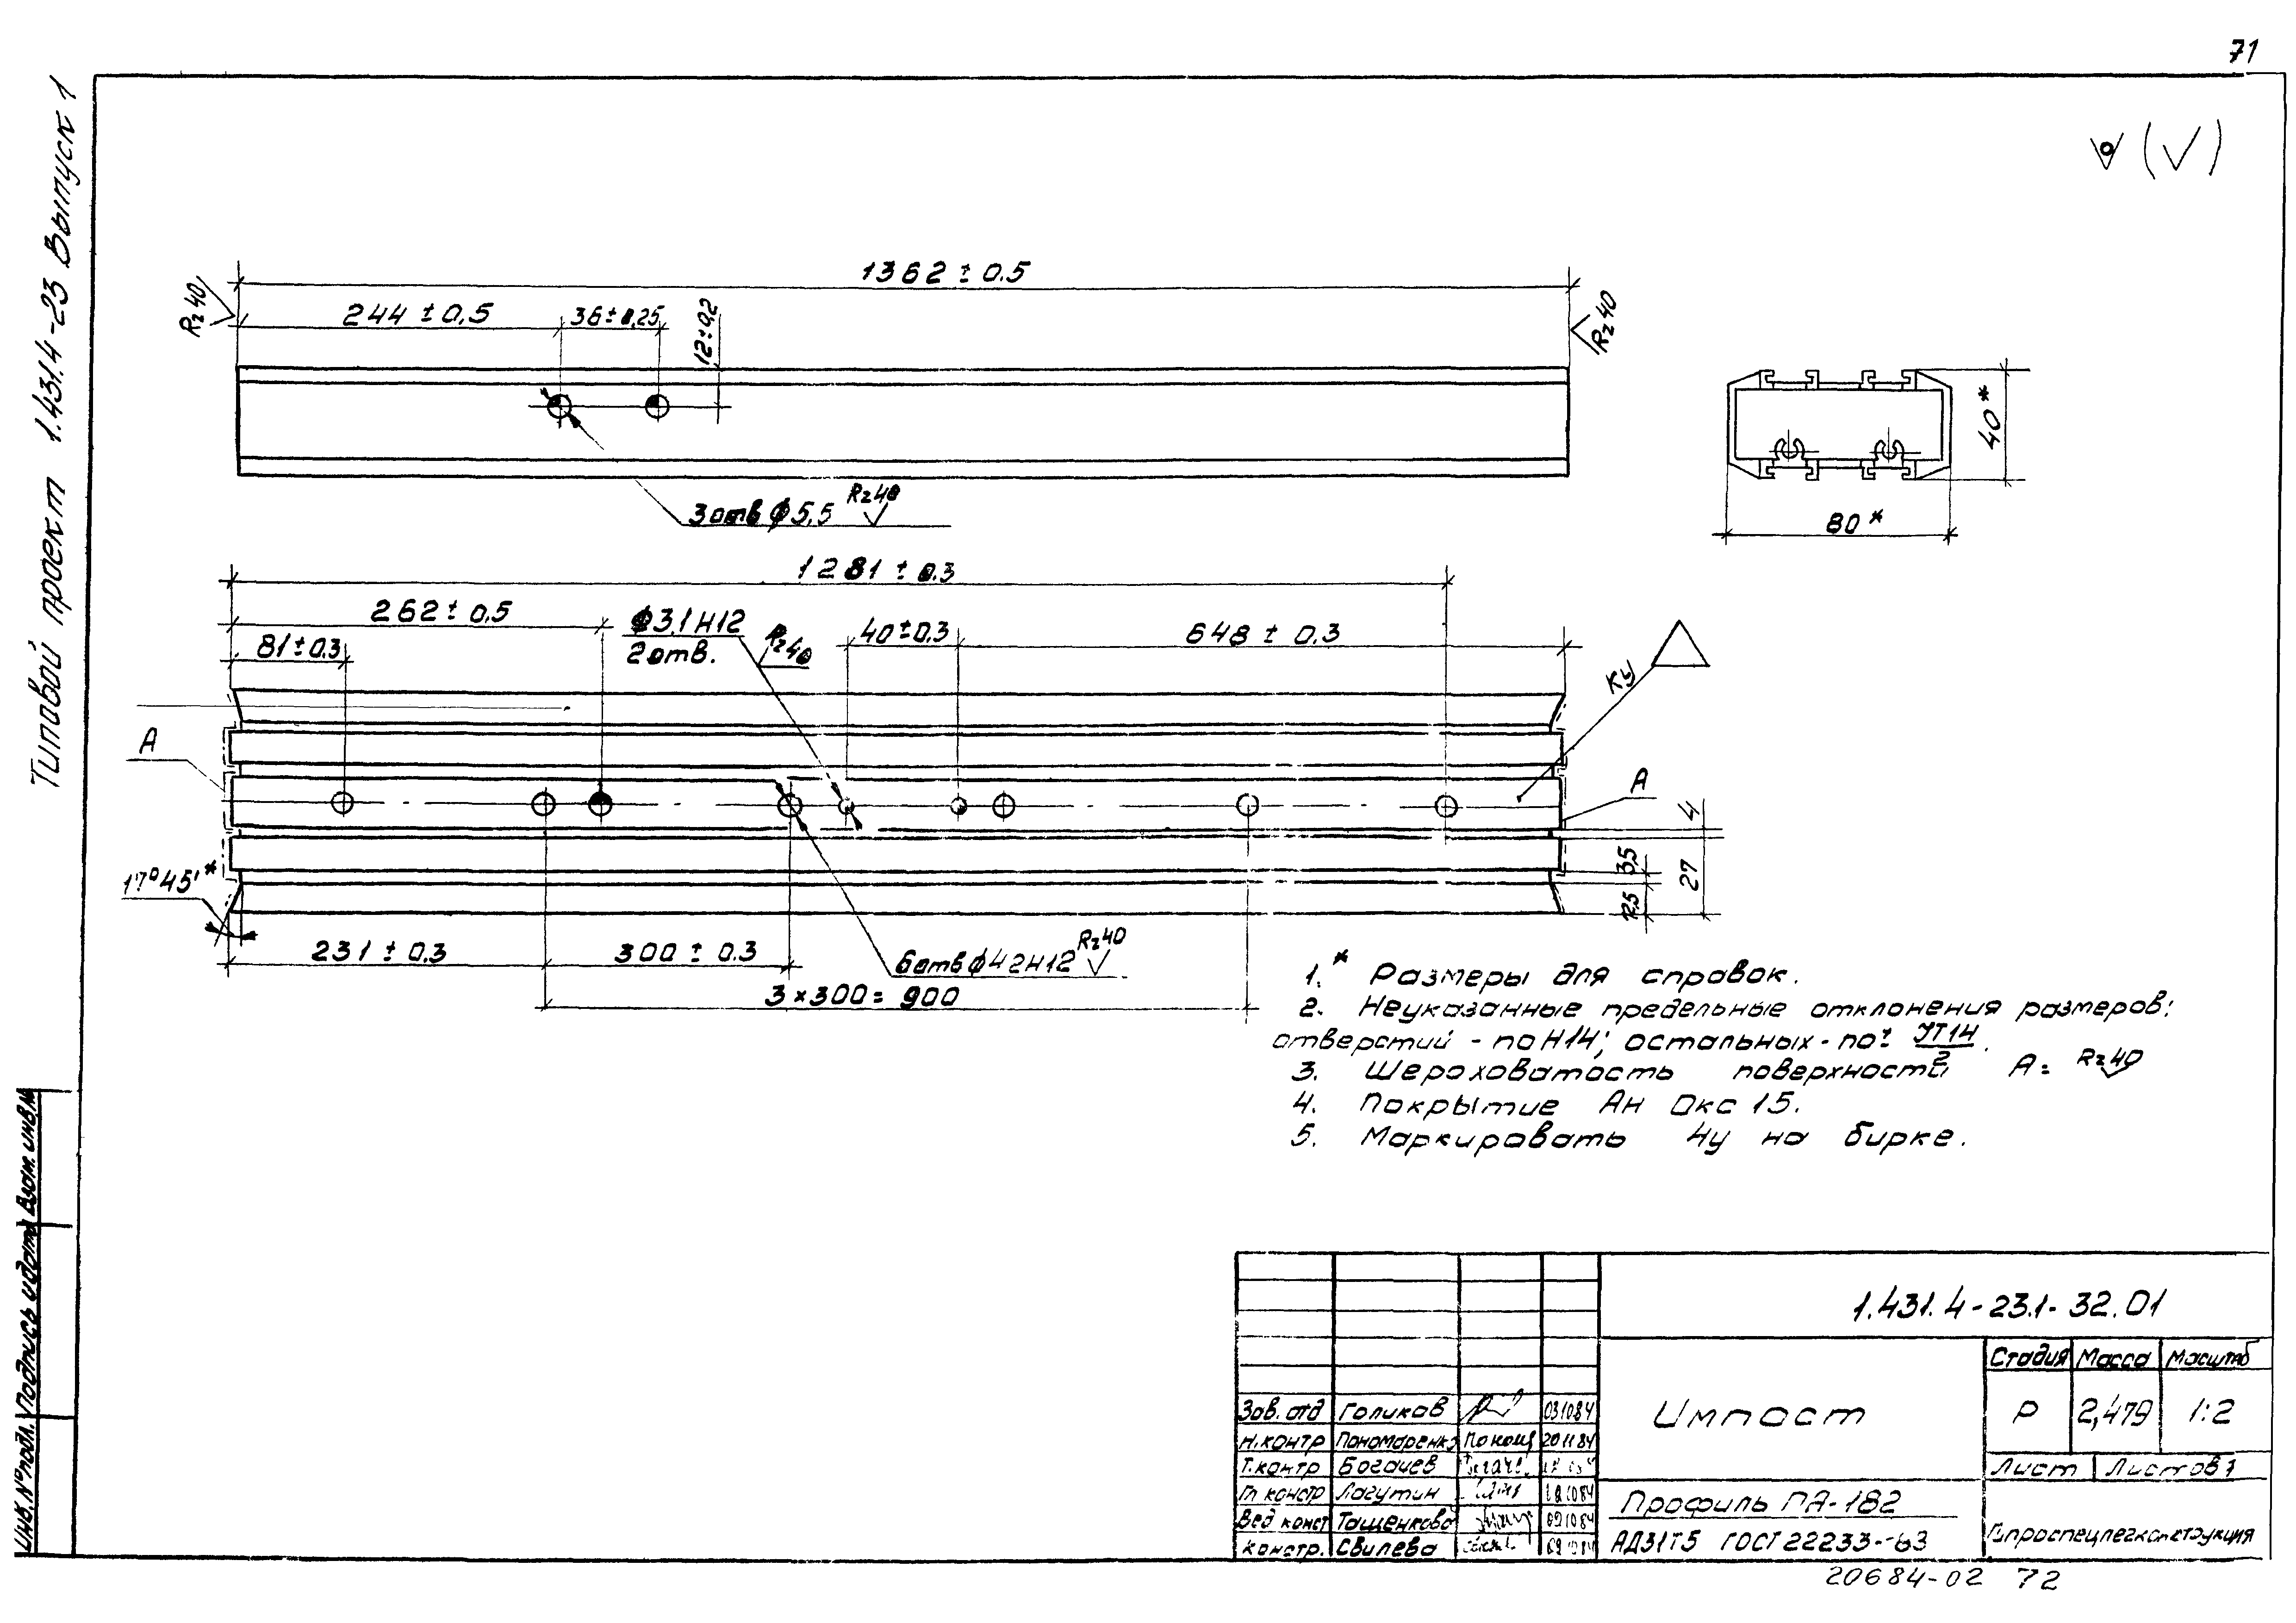 71
Типовой проект 1.431.4-23 Выпуск 1
√ (√)
1362 ± 0.5
244 ± 0.5
36 ± 0.25
12 ± 0.2
Rz40
Rz40
3 отв ϕ5,5 Rz40
40*
80*
1281 ± 0.3
262 ± 0.5
81 ± 0.3
ϕ3,1H12
2 отв.
Rz40
40 ± 0.3
648 ± 0.3
Ку
А
А
4
3,5
27
12,5
17°45'*
231 ± 0.3
300 ± 0.3
6 отв ϕ4,2H12 Rz40
3×300 = 900
1.* Размеры для справок.
2. Неуказанные предельные отклонения размеров:
отверстий - по H14; остальных - по ± JT14/2.
3. Шероховатость поверхности А = Rz40
4. Покрытие Ан Окс 15.
5. Маркировать Чу на бирке.
Инв. № подл. Подпись и дата Взам. инв. №
1.431.4-23.1-32.01
Импост
Стадия Масса Масштаб
Р 2,479 1:2
Лист Листов 1
Зав. отд Голиков 03.10.84
Н. контр Пономаренко 20.11.84
Т. контр Богачев
Гл констр Лагутин
Вед конст Тащенкова 09.10.84
Констр. Свилева 09.10.84
Профиль ПА-182
АД31Т5 ГОСТ 22233-83
Гипроспецлегконструкция
20684-02 72